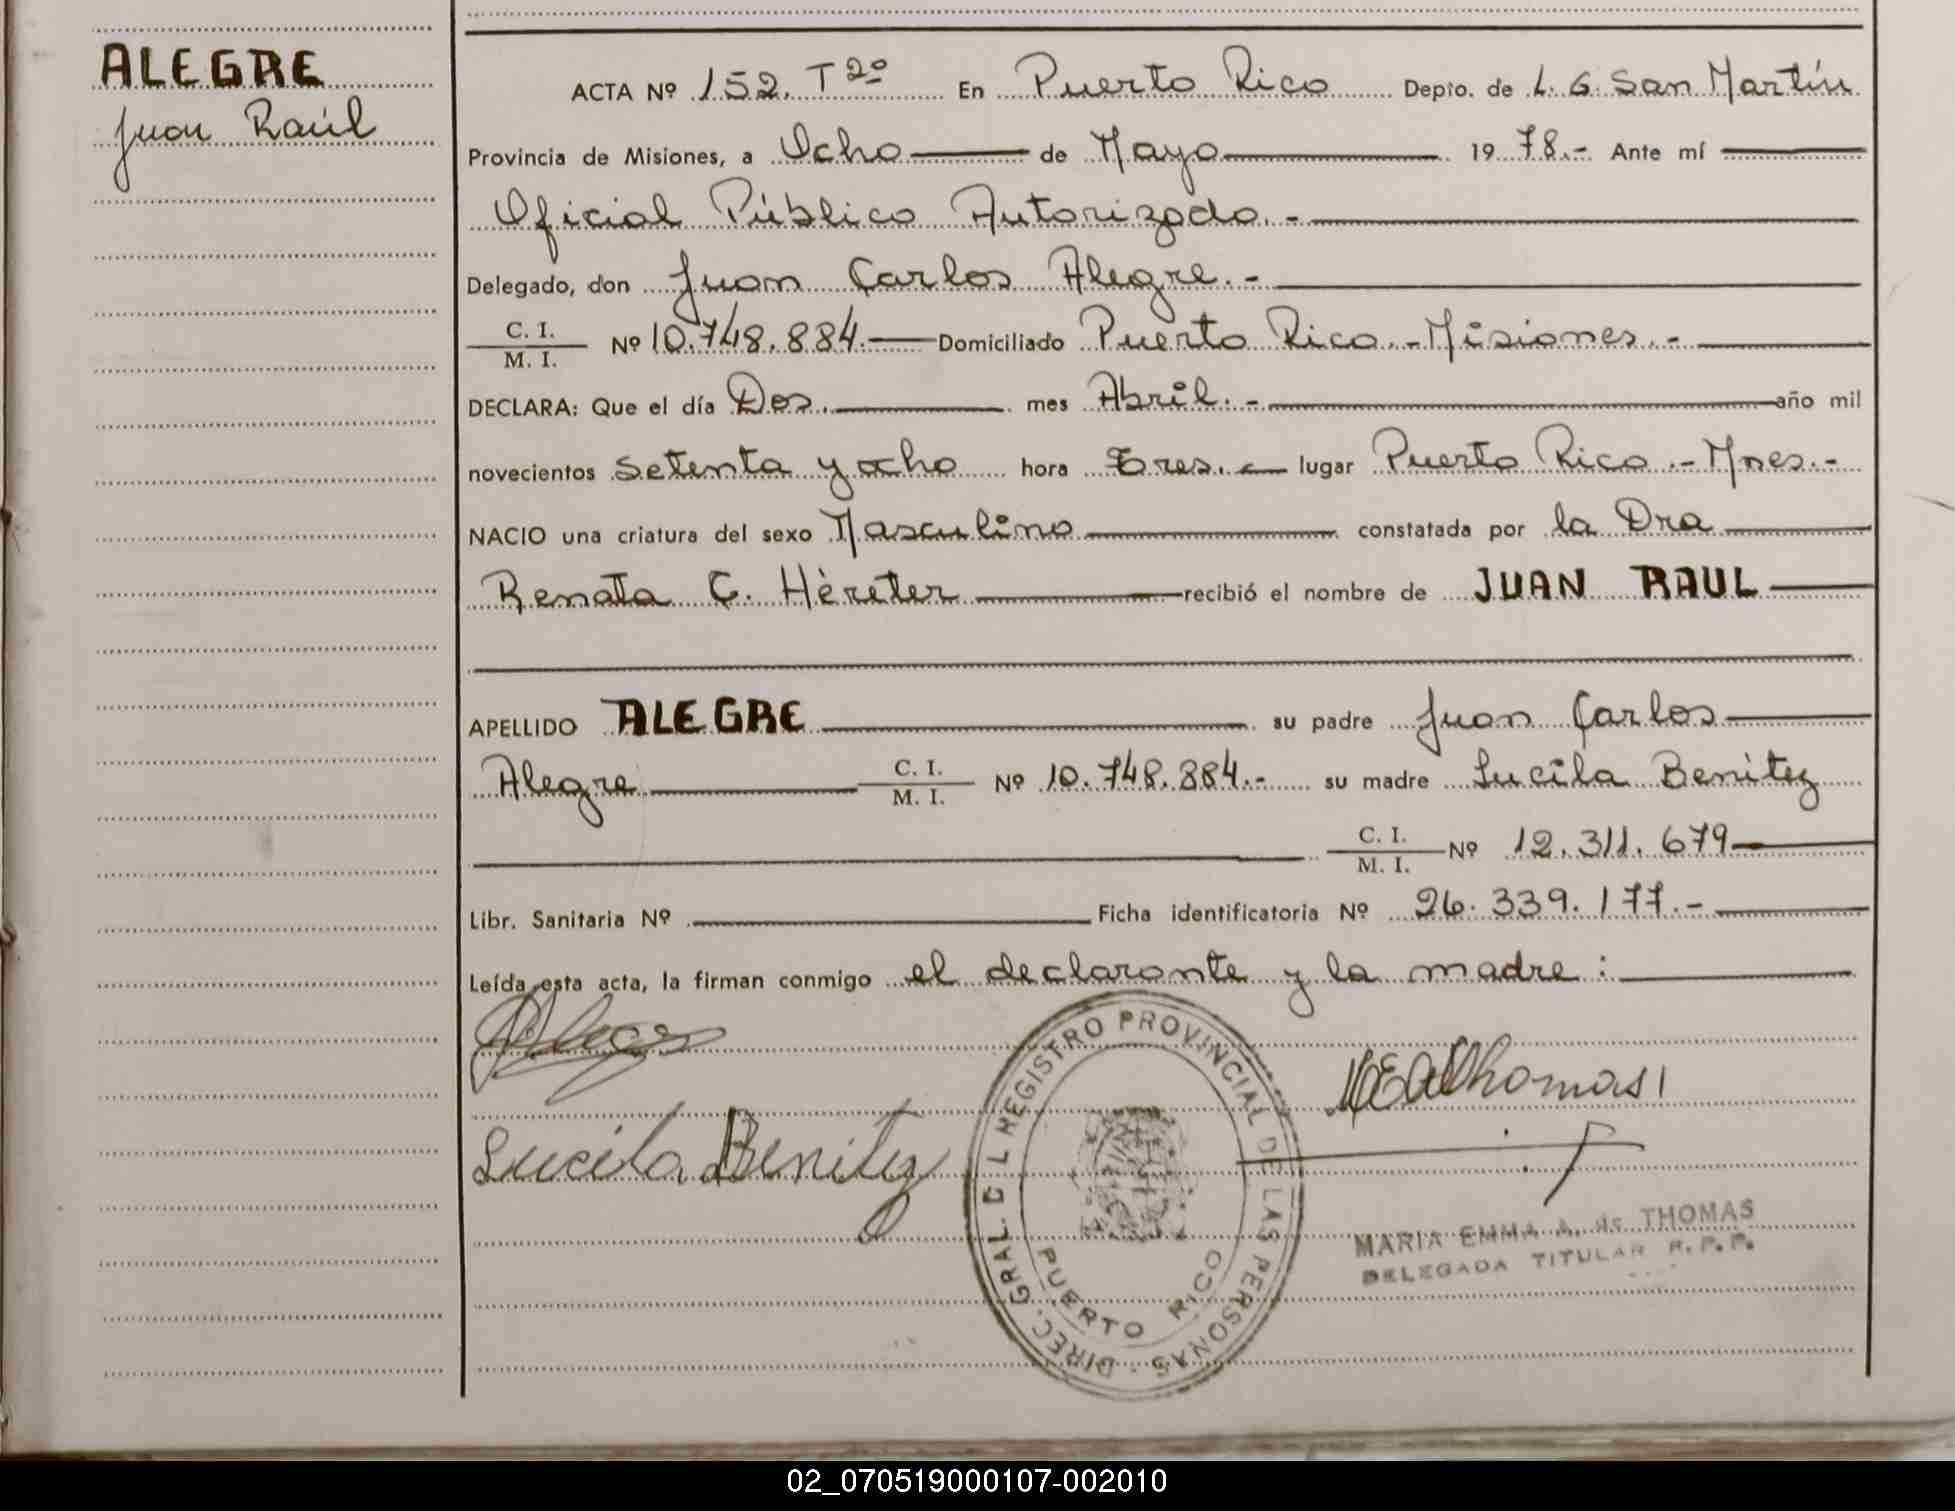 ALEGRE
Juan Raúl
ACTA Nº 152. T 2º En Puerto Rico Depto. de L. G. San Martín
Provincia de Misiones, a Ocho de Mayo 1978.- Ante mí
Oficial Público Autorizado.-
Delegado, don Juan Carlos Alegre.-
C. I.
M. I. Nº 10.748.884. Domiciliado Puerto Rico.-Misiones.-
DECLARA: Que el día Dos. mes Abril.- año mil
novecientos setenta y ocho hora Tres. lugar Puerto Rico.-Mnes.-
NACIO una criatura del sexo Masculino constatada por la Dra
Renata C. Hèreter recibió el nombre de JUAN RAUL
APELLIDO ALEGRE su padre Juan Carlos
Alegre C. I. M. I. Nº 10.748.884.- su madre Lucila Benitez
C. I. M. I. Nº 12.311.679
Libr. Sanitaria Nº Ficha identificatoria Nº 26.339.177.-
Leída esta acta, la firman conmigo el declarante y la madre:
Lucila Benitez
DIREC. GRAL. DEL REGISTRO PROVINCIAL DE LAS PERSONAS
PUERTO RICO
MARIA EMMA A. de THOMAS
DELEGADA TITULAR R. P. P.
02_070519000107-002010